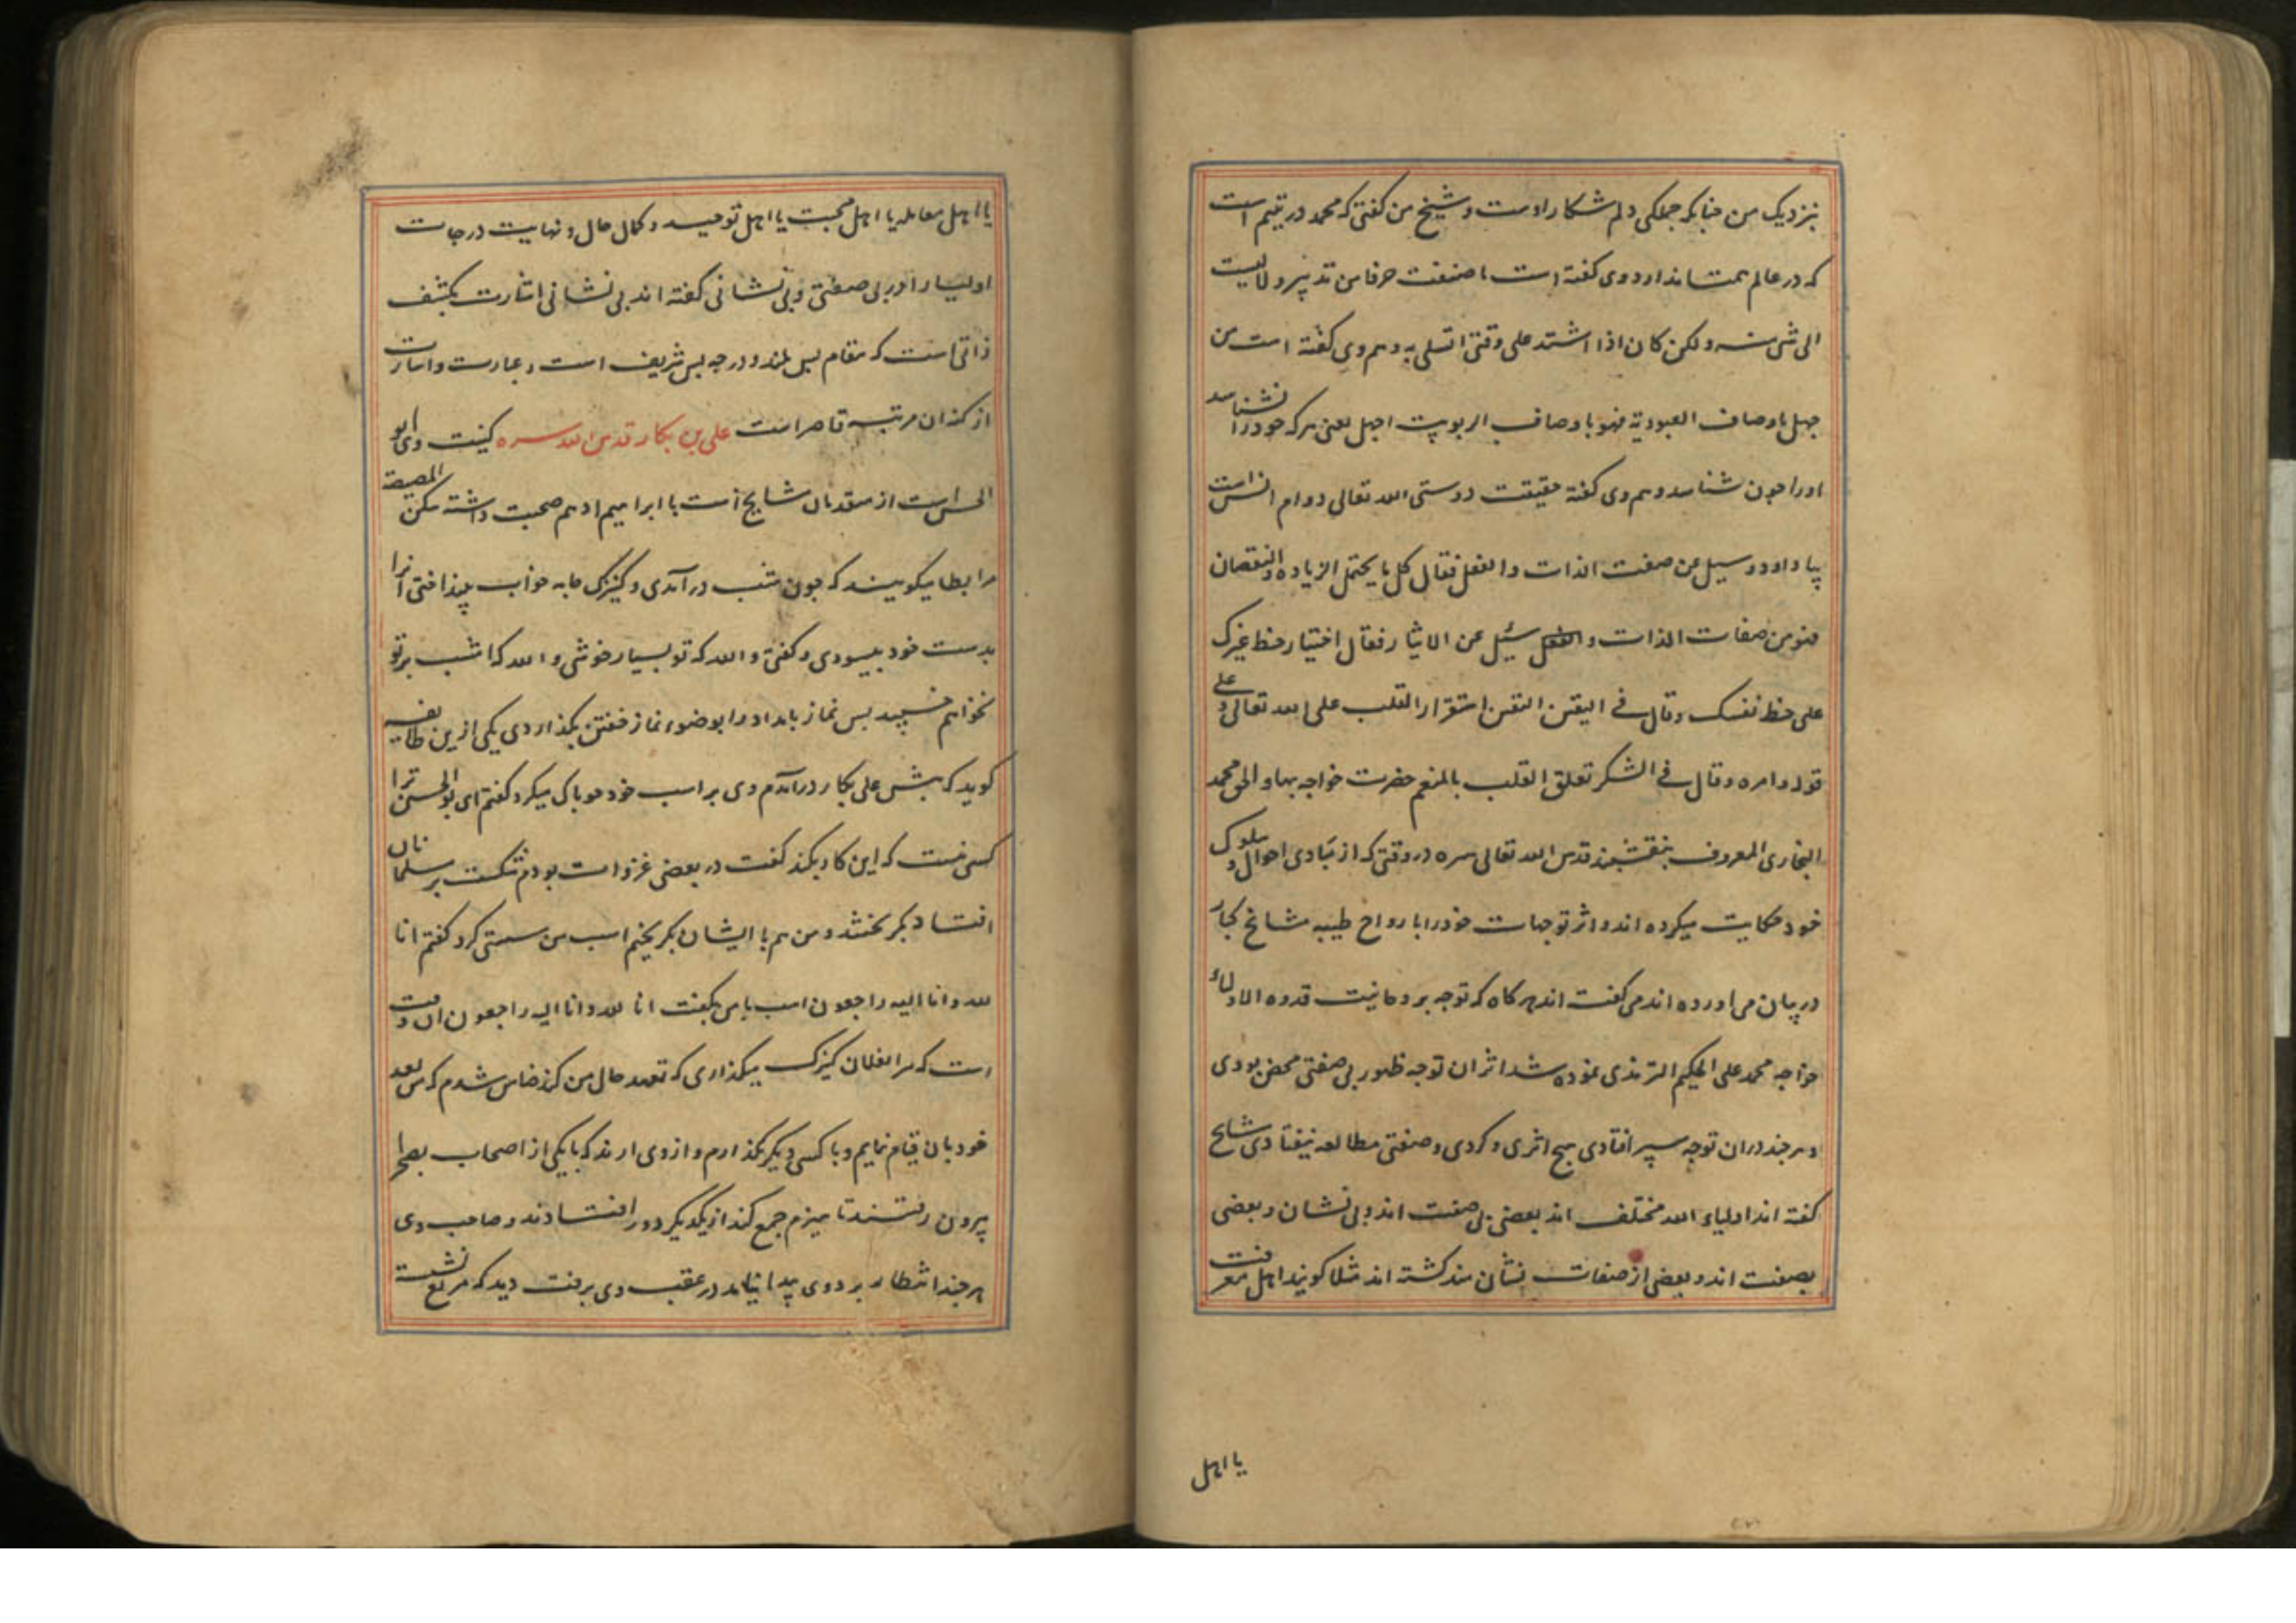 نزدیک من چنانکه جملگی دلم شکار اوست و شیخ من کفتی که محمد در یتیم است
که در عالم همتا ندارد و وی کفته است ما صنفت حرفا من تدبیر و لا لینسب
الی شئ منه ولکن کان اذا اشتد علی وقتی اتسلی به و هم وی کفته است من
جهل باوصاف العبودیة فهو باوصاف الربوبیت اجهل یعنی هرکه خود را نشناسد
او را چون شناسد و هم وی کفته حقیقت دوستی الله تعالی دوام انس است
بیاد او و سیل عن صفت الذات والفعل فقال کل ما یحتمل الزیاده والنقصان
فهو من صفات الذات والفعل سئیل عن الایثار فقال اختیار حظ غیرک
علی حظ نفسک وقال فی الیقین الیقین استقرار القلب علی الله تعالی و علی
قوله وامره وقال فی الشکر تعلق القلب بالمنعم حضرت خواجه بهاء الحق محمد
البخاری المعروف بنقشبند قدس الله تعالی سره در وقتی که از مبادی احوال و سلوک
خود حکایت میکرده اند و اثر توجهات خود را با رواح طیبه مشایخ کبار
در بیان می آورده اند می کفت اند هرکاه که توجه بروحانیت قدوه الاولیاء
خواجه محمد علی الحکیم الترمذی نموده شد اثر ان توجه ظهور بی صفتی محض بودی
و هر چند در ان توجه سیر افتادی هیچ اثری و کردی و صفتی مطالعه نیفتادی مشایخ
کفته اند اولیاء الله مختلف اند بعضی بی صفت اند و بی نشان و بعضی
بصفت اند و بعضی از صفات نشان مند کشته اند مثلا کویند اهل معرفت
یا اهل
یا اهل معامله یا اهل محبت یا اهل توحید و کمال حال و نهایت درجات
اولیا را در بی صفتی و بی نشانی کفته اند بی نشانی اشارت بکشف
ذاتی است که مقام بس بلند و درجه بس شریف است و عبارت و اشارت
از کنه ان مرتبه قاصر است علی بن بکار قدس الله سره کنیت وی ابو
الحسن است از متقدمان مشایخ است با ابراهیم ادهم صحبت داشته سکن المصیصه
مرابطا میکویند که چون شب در آمدی و کنیزک جامه خواب بینداختی آنرا
بدست خود بپسودی و کفتی والله که تو بسیار خوشی والله که امشب بر تو
نخواهم خسپید پس نماز بامداد را بوضوء نماز خفتن بکذاردی یکی ازین طایفه
کوید که پیش علی بکار درآمدم وی بر اسب خود جو پاک میکرد کفتم ای ابوالحسن ترا
کسی نیست که این کار بکند کفت در بعضی غزوات بودم شکست بر مسلمانان
افتاد بکریختند و من هم با ایشان بکریختم اسب من سستی کرد کفتم انا
لله وانا الیه راجعون اسب با من بکفت انا لله وانا الیه راجعون ان وقت
است که مرا بفلان کنیزک میکذاری که تعهد حال من کند ضامن شدم که من بعد
خود بان قیام نمایم و با کسی دیکر نکذارم و از وی ارند که با یکی از اصحاب بصحرا
بیرون رفتند تا هیزم جمع کنند از یکدیکر دور افتادند و صاحب وی
هر چند انتظار برد وی پیدا نیامد در عقب وی برفت دید که مربع نشسته